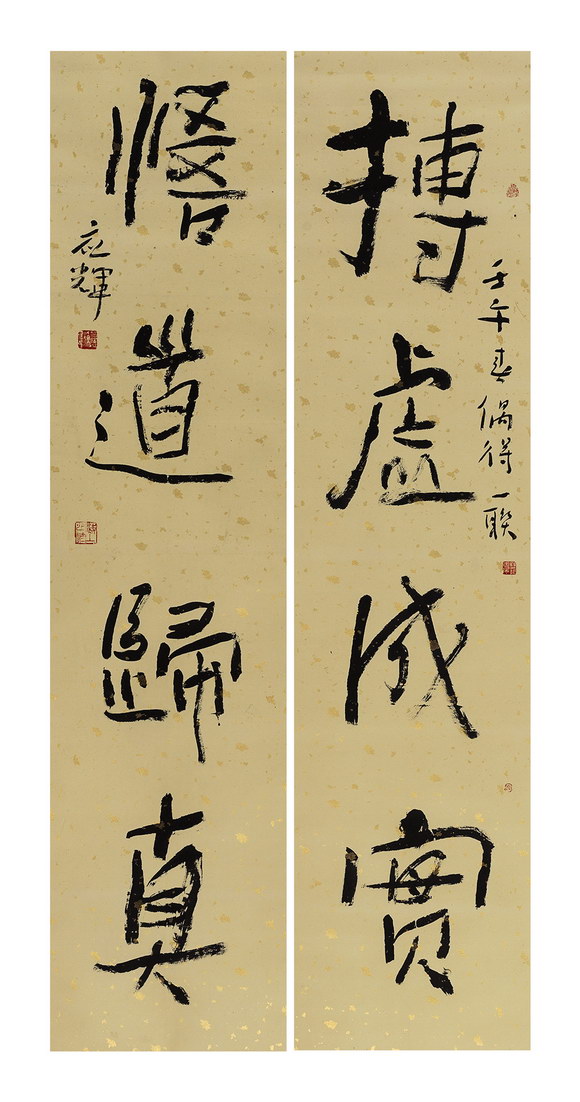 摶虛成實
壬午春偶得一聯
悟道歸真
应輝